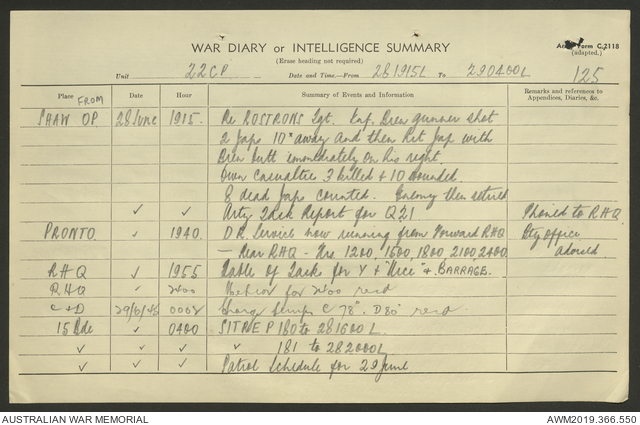 WAR DIARY or INTELLIGENCE SUMMARY
(Erase heading not required)
Form C.2118
(adapted.)
Unit 22 CP Date and Time.—From 281915L To 290400L 125
Place FROM Date Hour Summary of Events and Information Remarks and references to Appendices, Diaries, &c.
SHAW OP 28 June 1915. Re ROSTRONS Sgt. Inf. Bren gunner shot
2 Japs 10ˣ away and then hit Jap with
Bren butt immediately on his right.
Own casualties 3 killed & 10 wounded.
8 dead Japs counted. Enemy then retired
✓ ✓ Arty Task Report for Q21 Phoned to RHQ.
PRONTO ✓ 1940. D.R. Service now running from Forward RHQ Bty office
— Rear RHQ - Hrs 1200, 1500, 1800, 2100, 2400. advised.
RHQ ✓ 1955 Table of Task for Y & "Vice" & BARRAGE.
RHQ ✓ 2400 Meteor for 2400 recd
C & D 29/6/45 0002 Charge temps C 78°. D 80° recd.
15 Bde ✓ 0400 SITREP 180 to 281600L.
✓ ✓ ✓ " 181 to 282000L
✓ ✓ ✓ Patrol Schedule for 29 June
AUSTRALIAN WAR MEMORIAL
AWM2019.366.550